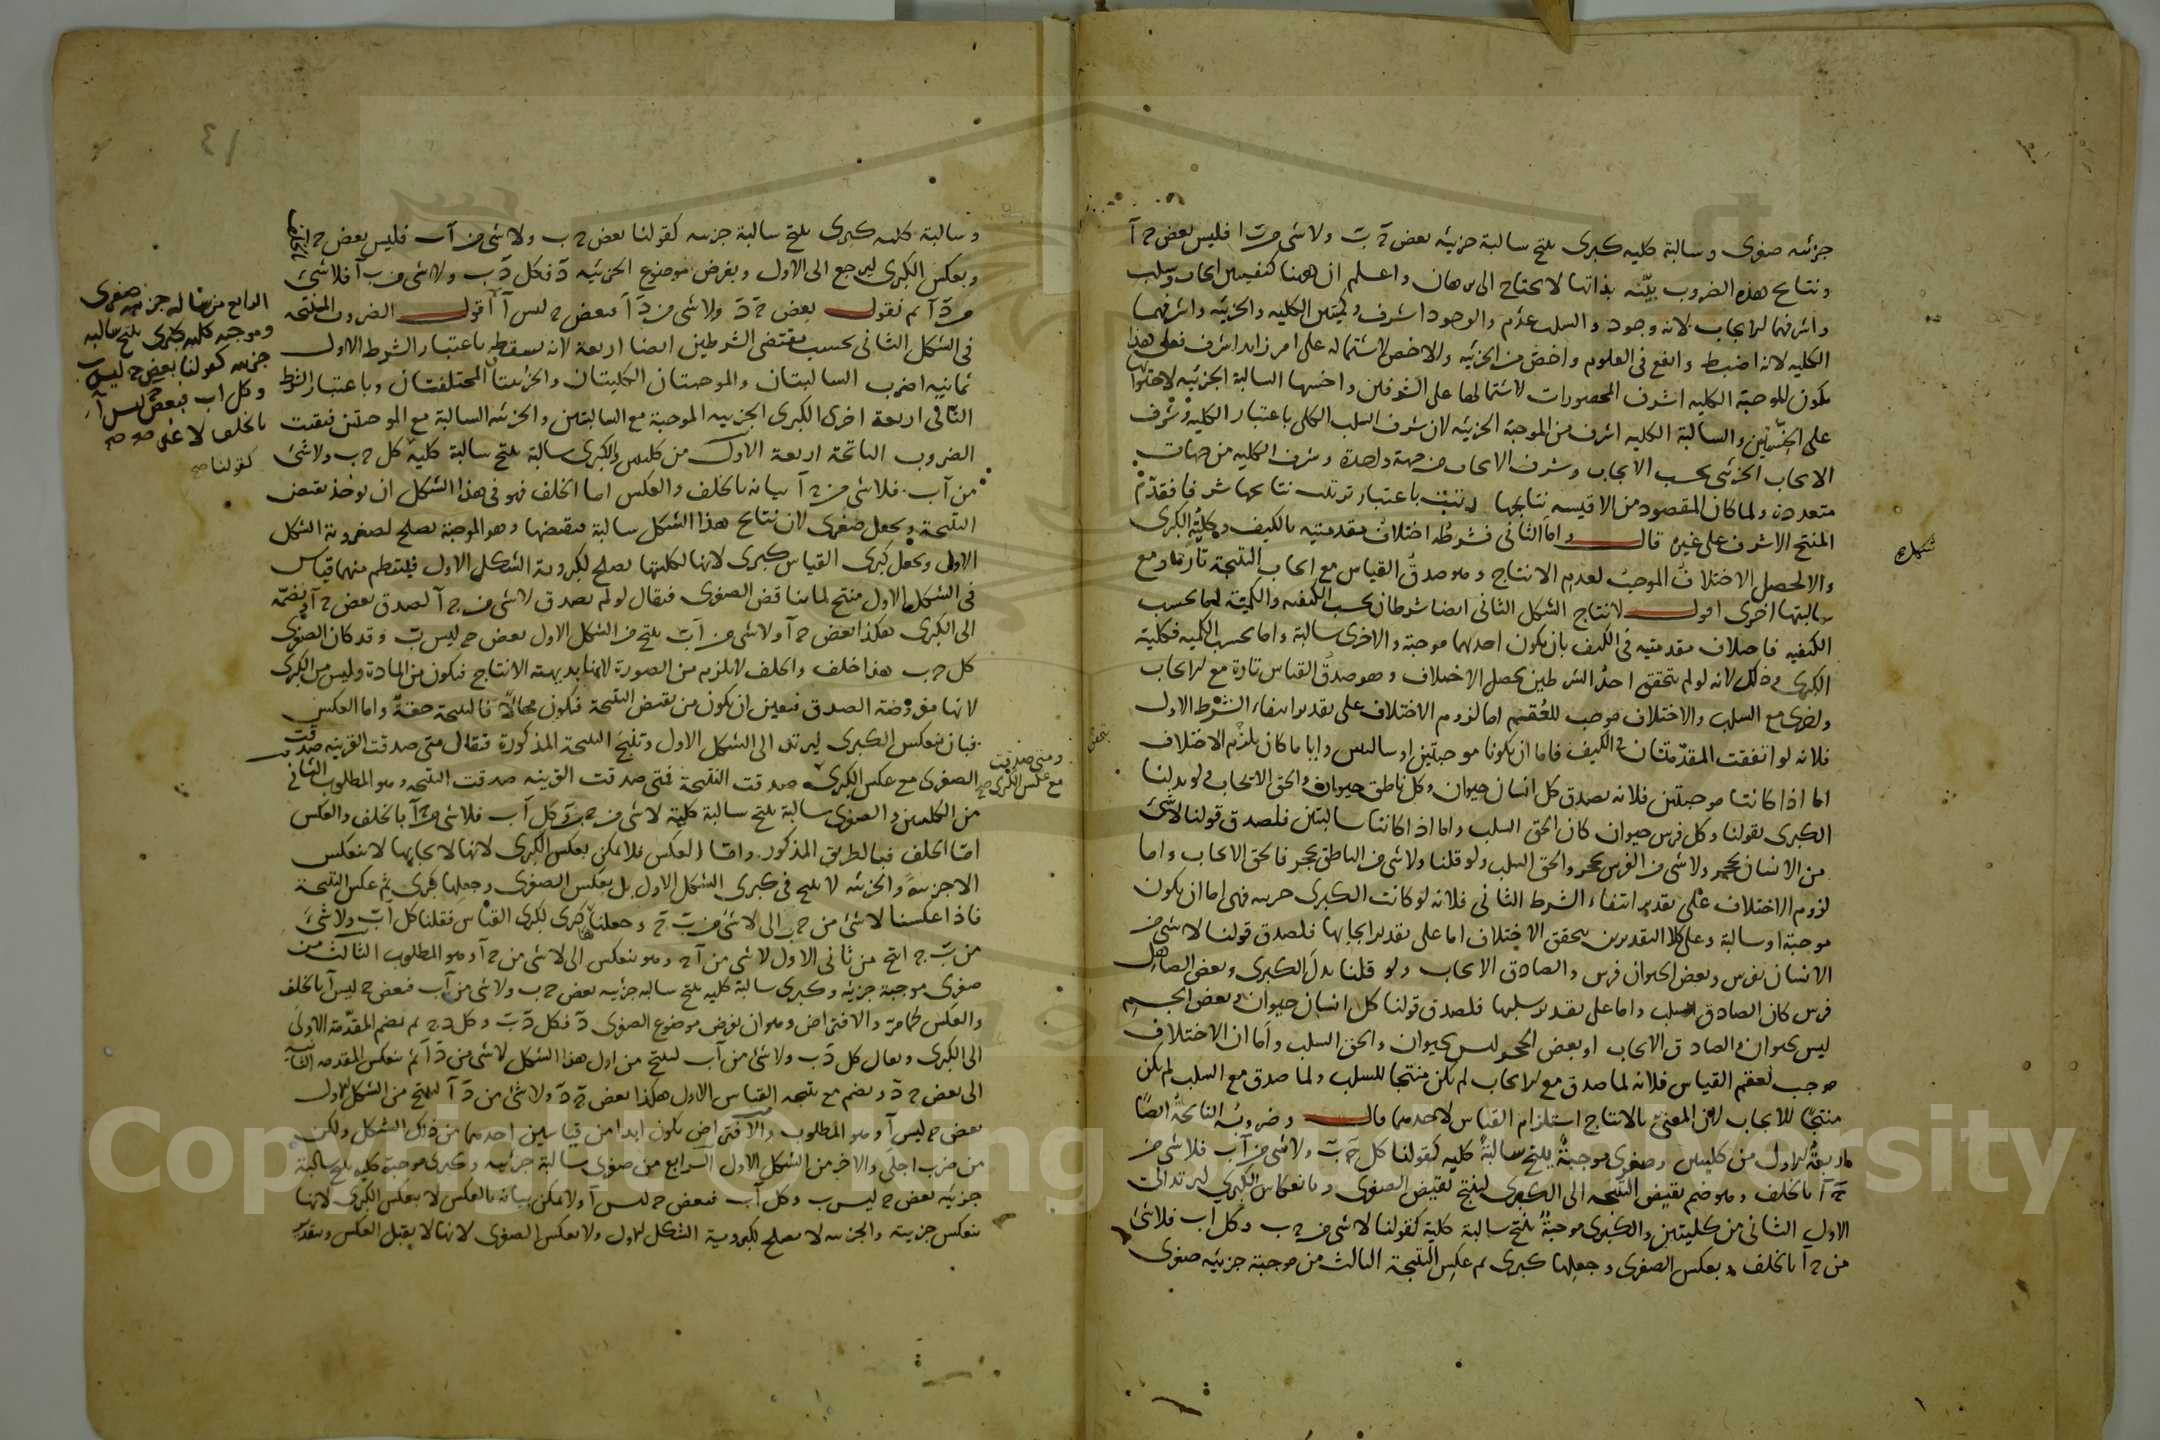 جزئيه صغرى وسالبة كليه كبرى ينتج سالبة جزئيه بعض ج ب ولا شى من ب ا فليس بعض ج آ
ونتايج هذه الضروب بيّنه بذاتها لا تحتاج الى برهان واعلم ان ههنا كيفيتين ايجاب وسلب
واشرفهما الايجاب لانه وجود والسلب عدم والوجود اشرف وكميتين الكليه والجزئيه واشرفهما
الكليه لانه اضبط وانفع فى العلوم واخص من الجزئيه والاخص لاشتماله على امر زايد اشرف فعلى هذا
يكون للموجبة الكليه اشرف المحصورات لاشتمالها على الشرفين واخسها السالبة الجزئيه لاحتوائها
على الخسّتين والسالبة الكليه اشرف من الموجبة الجزئيه لان شرف السلب الكلى باعتبار الكليه وشرف
الايجاب الجزئى بحسب الايجاب وشرف الايجاب من جهة واحدة وشرف الكليه من جهات
متعددة ولما كان المقصود من الاقيسه نتايجها رتبت باعتبار ترتيب نتايجها شرفا فقدّم
المنتج الاشرف على غيره قال واما الثانى فشرطه اختلاف مقدمتيه بالكيف وكليّة الكبرى
والا لحصل الاختلاف الموجب لعدم الانتاج وهو صدق القياس مع ايجاب النتيجة تارة ومع
سالبتها اخرى اقول لانتاج الشكل الثانى ايضا شرطان بحسب الكيفيه والكميّة اما بحسب
الكيفيه فاختلاف مقدمتيه فى الكيف بان يكون احديهما موجبة والاخرى سالبة واما بحسب الكميه فكلية
الكبرى وذلك لانه لو لم يتحقق احد الشرطين يحصل الاختلاف وهو صدق القياس تارة مع الايجاب
واخرى مع السلب والاختلاف موجب للعقم اما لزوم الاختلاف على تقدير انتفاء الشرط الاول
فلانه لو اتفقت المقدّمتان فى الكيف فاما ان يكونا موجبتين او سالبتين وايا ما كان يلزم الاختلاف
اما اذا كانتا موجبتين فلانه يصدق كل انسان حيوان وكل ناطق حيوان والحق الايجاب ولو بدلنا
الكبرى بقولنا وكل فرس حيوان كان الحق السلب واما اذا كانتا سالبتين فلصدق قولنا لا شئ
من الانسان بحجر ولا شى من الفرس بحجر والحق السلب ولو قلنا ولا شى من الناطق بحجر فالحق الايجاب واما
لزوم الاختلاف على تقدير انتفاء الشرط الثانى فلانه لو كانت الكبرى جزئيه فهى اما ان يكون
موجبة او سالبة وعلى كلا التقديرين يتحقق الاختلاف اما على تقدير ايجابها فلصدق قولنا لا شى من
الانسان بفرس وبعض الحيوان فرس والصادق الايجاب ولو قلنا بدل الكبرى وبعض الصاهل
فرس كان الصادق السلب واما على تقدير سلبها فلصدق قولنا كل انسان حيوان وبعض الجسم
ليس بحيوان والصادق الايجاب او بعض الحجر ليس بحيوان والحق السلب واما ان الاختلاف
موجب لعقم القياس فلانه لما صدق مع الايجاب لم يكن منتجا للسلب ولما صدق مع السلب لم يكن
منتجًا للايجاب لان المعنىّ بالانتاج استلزام القياس لاحدهما قال وضروبه الناتجة ايضًا
اربعة الاول من كليتين وصغرى موجبة ينتج سالبة كليه كقولنا كل ج ب ولا شى من آ ب فلا شى من
ج آ بالخلف وهو ضم نقيض النتيجه الى الكبرى لينتج نقيض الصغرى وبانعكاس الكبرى ليرتد الى
الاول الثانى من كليتين والكبرى موجبة ينتج سالبة كلية كقولنا لا شى من ج ب وكل ا ب فلا شئ
من ج آ بالخلف وبعكس الصغرى وجعلها كبرى ثم عكس النتيجة الثالث من موجبة جزئيه صغرى
شكل
وسالبة كليه كبرى ينتج سالبة جزئيه كقولنا بعض ج ب ولا شى من آ ب فليس بعض ج ا بالخلف
وبعكس الكبرى ليرجع الى الاول وبفرض موضوع الجزئيه د فكل د ب ولا شى من ب آ فلا شئ
من د آ ثم نقول بعض ج د ولا شى من د آ فبعض ج ليس آ اقول الضروب المنتجه
فى الشكل الثانى بحسب مقتضى الشرطين ايضا اربعة لانه يسقط باعتبار الشرط الاول
ثمانيه اضرب السالبتان والموجبتان الكليتان والجزئيتان المختلفتان وباعتبار الشرط
الثانى اربعة اخرى الكبرى الجزئيه الموجبة مع السالبتين والجزئيه السالبة مع الموجبتين فبقيت
الضروب الناتجة اربعة الاول من كليتين والكبرى سالبة ينتج سالبة كلية كل ج ب ولا شئ
من آ ب فلا شى من ج آ بيانه بالخلف والعكس اما الخلف فهو فى هذا الشكل ان يؤخذ نقيض
النتيجة ويجعل صغرى لان نتايج هذا الشكل سالبة فنقيضها وهو الموجبة يصلح لصغروية الشكل
الاول ويجعل كبرى القياس كبرى لانها لكليتها يصلح لكبروية الشكل الاول فينتظم منهما قياس
فى الشكل الاول منتج لما يناقض الصغرى فيقال لو لم يصدق لا شى من ج آ لصدق بعض ج آ ونضمّه
الى الكبرى هكذا بعض ج آ ولا شى من آ ب ينتج من الشكل الاول بعض ج ليس ب وقد كان الصغرى
كل ج ب هذا خلف والخلف لا يلزم من الصورة لانها بديهية الانتاج فيكون من المادة وليس من الكبرى
لانها مفروضة الصدق فتعين ان يكون من نقيض النتيجة فيكون محالا فالنتيجة حقة واما العكس
فبان ينعكس الكبرى ليرتد الى الشكل الاول وتنتج النتيجة المذكورة فيقال متى صدقت القرينه صدقت
الصغرى مع عكس الكبرى صدقت النتيجة فمتى صدقت القرينه صدقت النتيجه وهو المطلوب الثانى
من الكليتين والصغرى سالبة ينتج سالبة كلية لا شى من ج ب وكل آ ب فلا شى من ج آ بالخلف والعكس
امّا الخلف فبالطريق المذكور وامّا العكس فلا يمكن بعكس الكبرى لانها لايجابها لا ينعكس
الا جزئيةً والجزئيه لا ينتج فى كبرى الشكل الاول بل بعكس الصغرى وجعلها كبرى ثم عكس النتيجة
فاذا عكسنا لا شئ من ج ب الى لا شئ من ب ج وجعلناها كبرى لكبرى القياس فقلنا كل ا ب ولا شئ
من ب ج انتج من ثانى الاول لا شى من آ ج وهو ينعكس الى لا شى من ج آ وهو المطلوب الثالث من
صغرى موجبة جزئيه وكبرى سالبة كليه ينتج سالبه جزئيه بعض ج ب ولا شى من آ ب فبعض ج ليس آ بالخلف
والعكس كما مرّ والافتراض وهو ان يفرض موضوع الصغرى د فكل د ب وكل د ج ثم نضم المقدّمة الاولى
الى الكبرى ويقال كل د ب ولا شئ من آ ب لينتج من اول هذا الشكل لا شى من د آ ثم ينعكس المقدمه الثانيه
الى بعض ج د ونضم مع نتيجه القياس الاول هكذا بعض ج د ولا شئ من د آ لينتج من الشكل الاول
بعض ج ليس آ وهو المطلوب والافتراض يكون ابدا من قياسين احدهما من ذلك الشكل ولكن
من ضرب اجلى والاخر من الشكل الاول الرابع من صغرى سالبة جزئيه وكبرى موجبة كليه ينتج سالبة
جزئيه بعض ج ليس ب وكل آ ب فبعض ج ليس آ ولا يمكن بيانه بالعكس لا بعكس الكبرى لانها
ينعكس جزيية والجزئيه لا يصلح لكبروية الشكل الاول ولا بعكس الصغرى لانها لا يقبل العكس وبتقدير
الرابع من سالبه جزئيه صغرى
وموجبه كليه كبرى ينتج سالبه
جزئيه كقولنا بعض ج ليس ب
وكل ا ب فبعض ج ليس آ
بالخلف لا غير صح صح
كقولنا صح
ومتى صدقت
مع عكس الكبرى صح